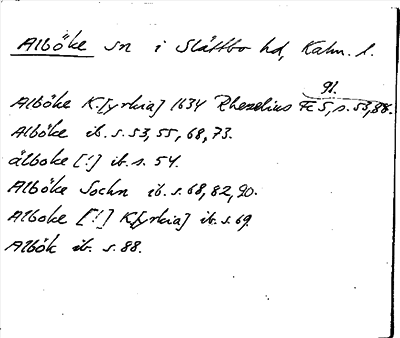 Alböke sn i Slättbo hd, Kalm. l.
91.
Alböke K[yrkia] 1634 Rhezelius Fc 5, s. 53, 88.
Alböke ib. s. 53, 55, 68, 73.
ålboke [!] ib. s. 54.
Alböke Sochn ib. s. 68, 82, 90.
Alboke [!] K[yrkia] ib. s. 69.
Albök ib. s. 88.